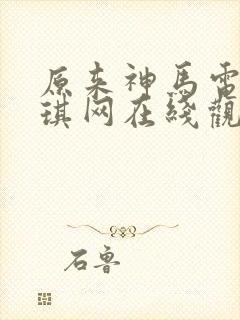 原来神馬電
琪网在綫觀
石鲁